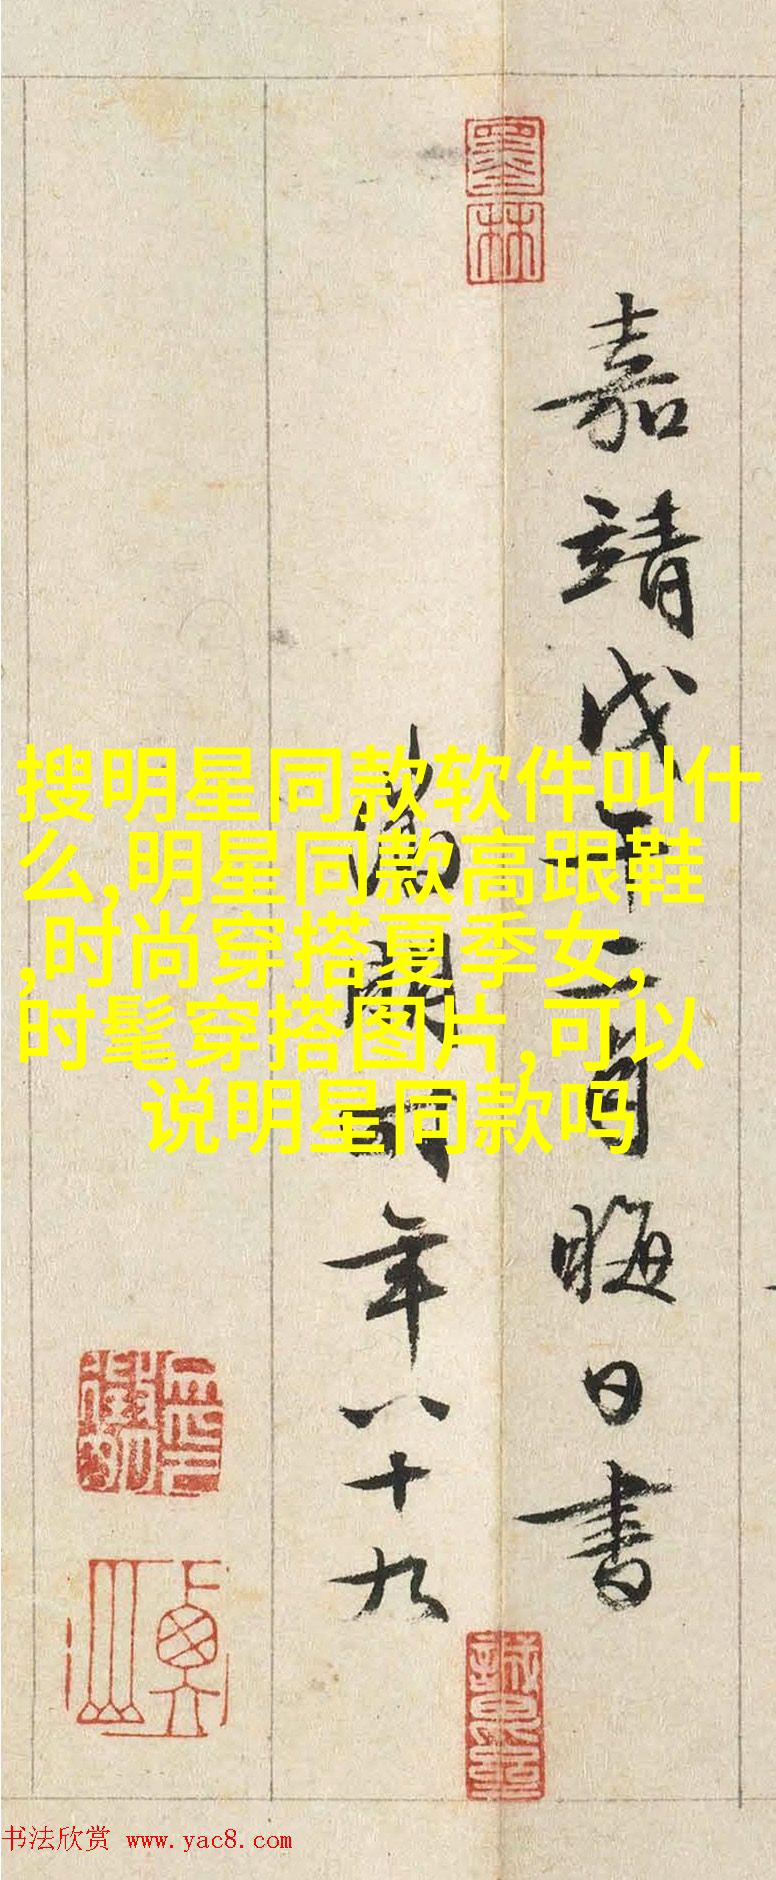 嘉靖戊午二月晦日書
徵明時年八十九
墨林
搜明星同款软件叫什
么,明星同款高跟鞋
,时尚穿搭夏季女,
时髦穿搭图片,可以
说明星同款吗
书法欣赏 www.yac8.com